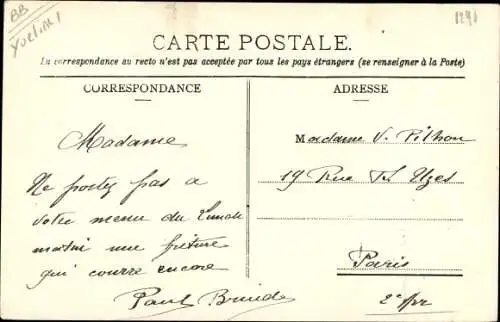 BB
Yvelines
1291
CARTE POSTALE.
La correspondance au recto n'est pas acceptée par tous les pays étrangers (se renseigner à la Poste)
CORRESPONDANCE
Madame
Ne portez pas a
votre menu du Lundi
matin une friture
qui courre encore
Paul
ADRESSE
Madame V. Pilhon
19 Rue Uzes
Paris
2e Arr